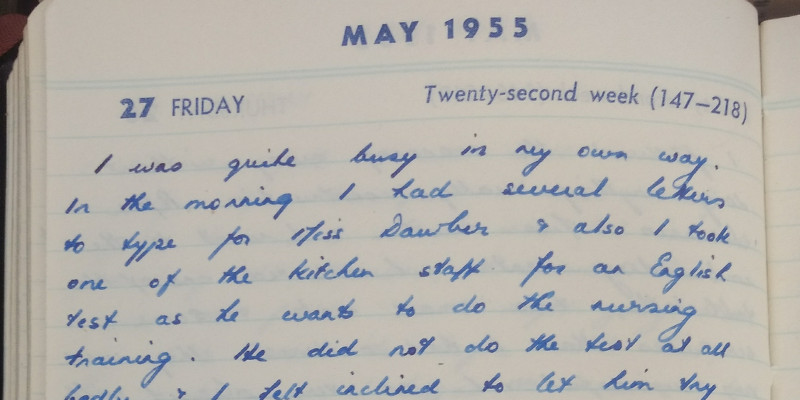 MAY 1955
27 FRIDAY Twenty-second week (147–218)
I was quite busy in my own way.
In the morning I had several letters
to type for Miss Dawber & also I took
one of the kitchen staff for an English
test as he wants to do the nursing
training. He did not do the test at all
badly & I felt inclined to let him try